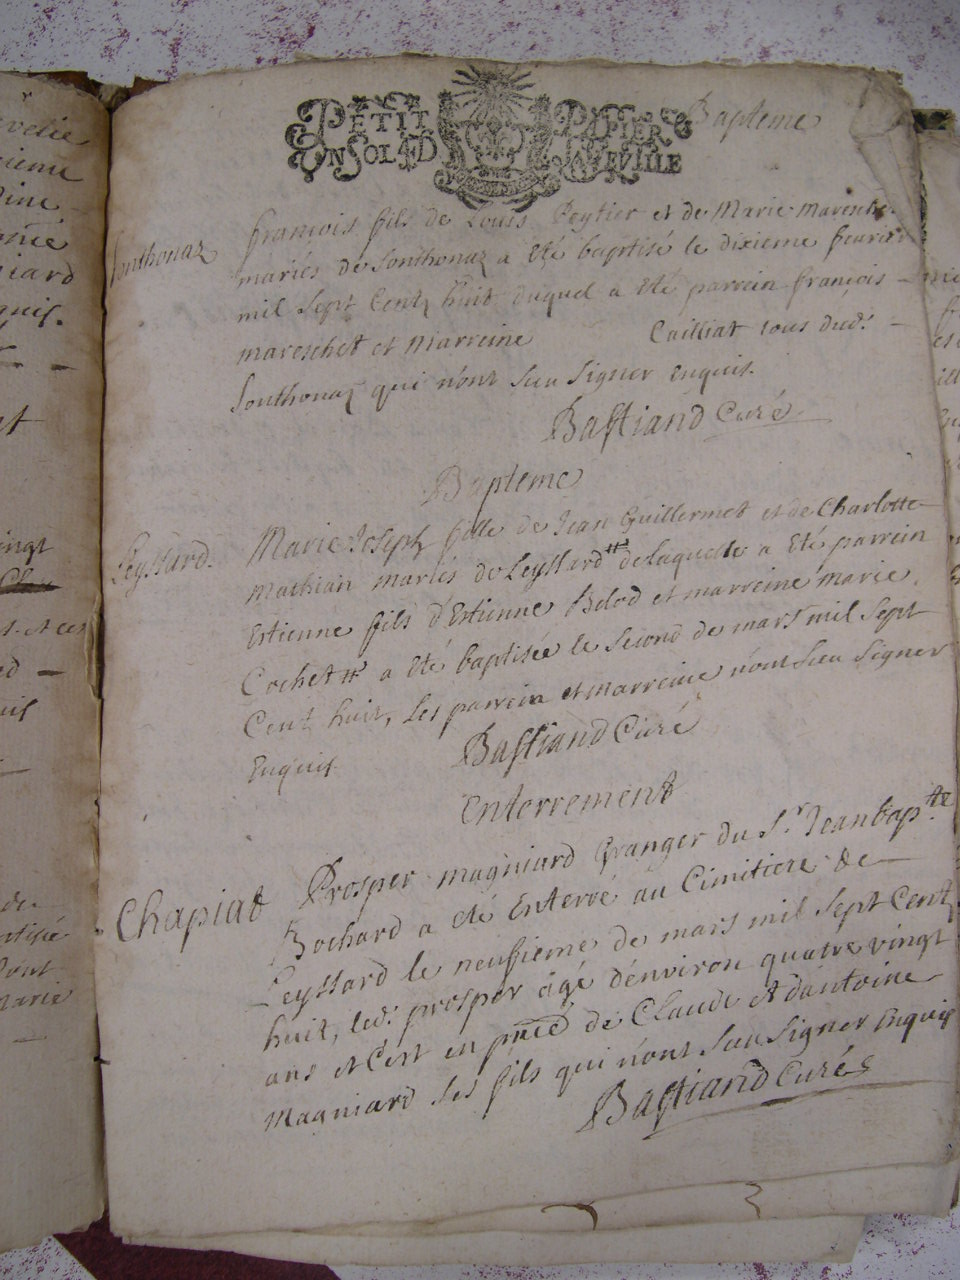 PETIT PAPIER
UN SOL LA FEVILLE
Bapteme
Sonthonaz
françois fils de Louis Peytier et de Marie Marenche
mariés de Sonthonaz a eté baptisé le dixieme feurier
mil sept Centz huit duquel a eté parrein françois -
mareschet et Marreine Cailliat tous dud: -
Sonthonaz qui n'ont sceu signer Enquis.
Bastiand Curé
Bapteme
Leyssard.
Marie Joseph fille de Jean Guillermet et de Charlotte
Mathian mariés de Leyssard de laquelle a eté parrein
Estienne fils d'Estienne Belod et marreine marie
Cochet a eté baptisée le second de mars mil sept
Cent huit, Les parrein et marreine n'ont sceu signer
Enquis
Bastiand Curé
Enterrement
Chapiat
Prosper magniard Granger du Sr Jean bapte
Bochard a eté Enterré au Cimitiere de
Leyssard le neufieme de mars mil sept Centz
huit, led: prosper âgé d'environ quatre vingt
ans et C'est en pñce de Claude et d'antoine
Magniard ses fils qui n'ont sceu signer Enquis
Bastiand Curé